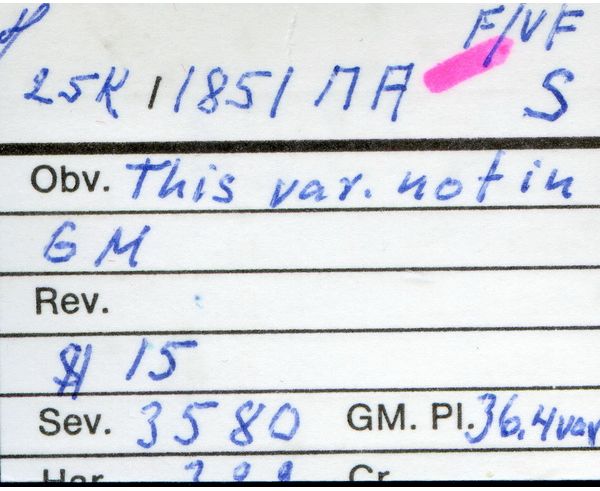 F/VF
25K 1851 ПА S
Obv. This var. not in
GM
Rev.
$ 15
Sev. 3580 GM. Pl. 36.4var
Har. Cr.